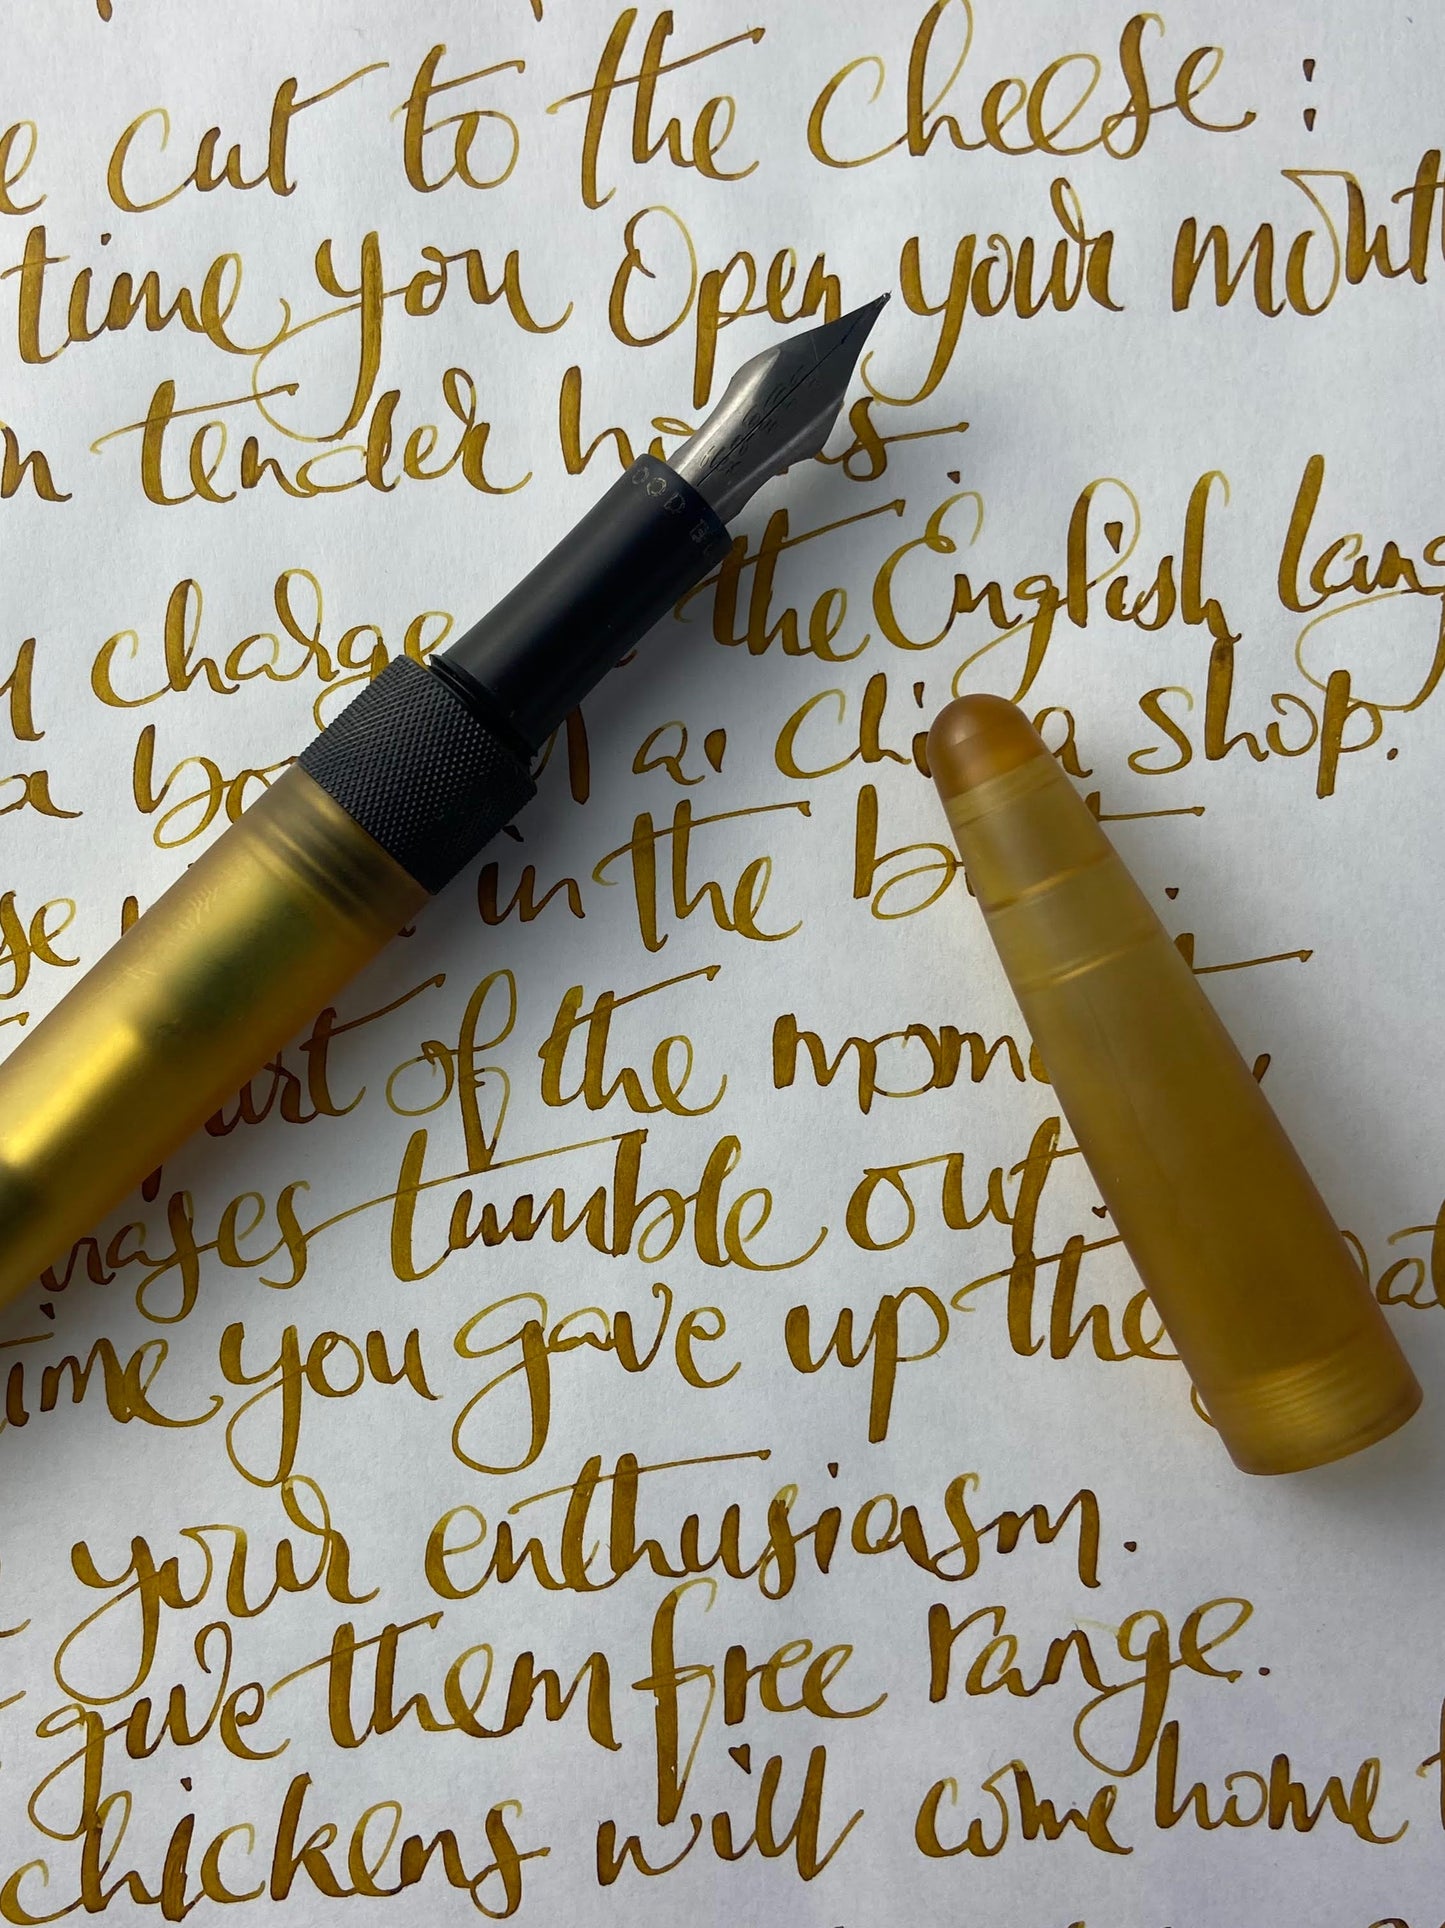 e cut to the cheese:
time you open your mouth
n tender h s.
charge the English lang
a bo a China shop.
se in the b
art of the mome
rases tumble out.
time you gave up the
your enthusiasm.
give them free range.
chickens will come home t